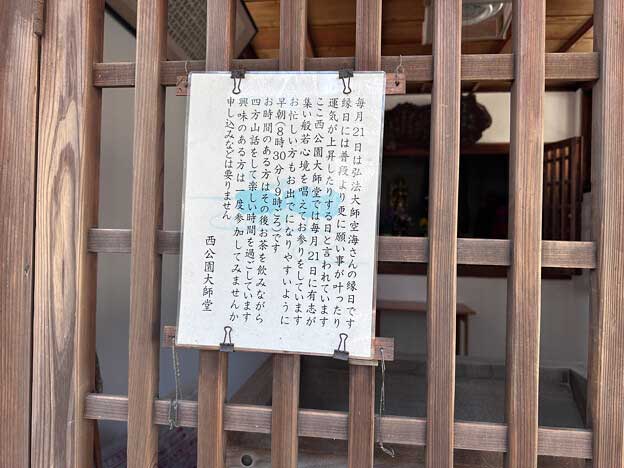 毎月21日は弘法大師空海さんの縁日です
縁日には普段より更に願い事が叶ったり
運気が上昇したりする日と言われています
ここ西公園大師堂では毎月21日に有志が
集い般若心境を唱えてお参りをしています
お忙しい方もお出でになりやすいように
早朝(8時30分~9時ごろ)です
お時間のある方はその後お茶を飲みながら
四方山話をして楽しい時間を過ごしています
興味のある方は一度参加してみませんか
申し込みなどは要りません
西公園大師堂